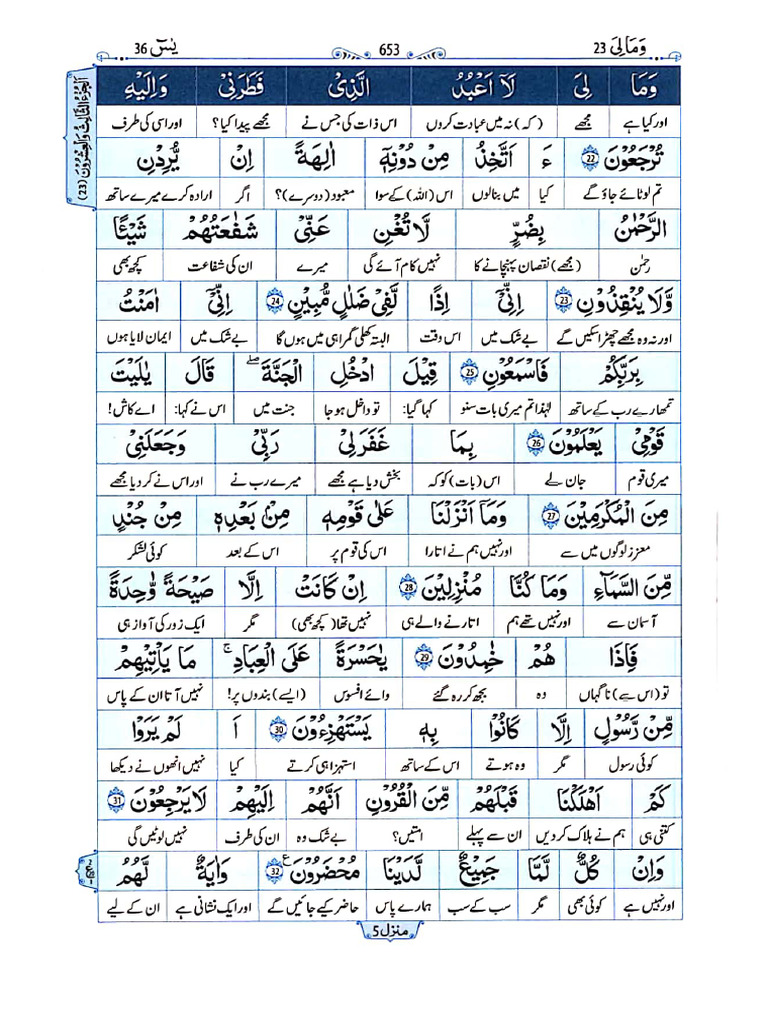 وَمَالِیَ 23
653
یٰسٓ 36
اَلْجُزْءُ الثَّالِثُ وَالْعِشْرُوْنَ (23)
وَمَا لِیَ لَاۤ اَعْبُدُ الَّذِیْ فَطَرَنِیْ وَاِلَیْهِ
اور کیا ہے مجھے (کہ) نہ میں عبادت کروں اس ذات کی جس نے مجھے پیدا کیا؟ اور اسی کی طرف
تُرْجَعُوْنَ 22 ءَ اَتَّخِذُ مِنْ دُوْنِهٖۤ اٰلِهَةً اِنْ یُّرِدْنِ
تم لوٹائے جاؤ گے کیا میں بنالوں اس (اللہ) کے سوا معبود (دوسرے)؟ اگر ارادہ کرے میرے ساتھ
الرَّحْمٰنُ بِضُرٍّ لَّا تُغْنِ عَنِّیْ شَفٰعَتُهُمْ شَیْـًٔا
رحمٰن (مجھے) نقصان پہنچانے کا نہیں کام آئے گی میرے ان کی شفاعت کچھ بھی
وَّلَا یُنْقِذُوْنِ 23 اِنِّیْۤ اِذًا لَّفِیْ ضَلٰلٍ مُّبِیْنٍ 24 اِنِّیْۤ اٰمَنْتُ
اور نہ وہ مجھے چھڑا سکیں گے بے شک میں اس وقت البتہ کھلی گمراہی میں ہوں گا بے شک میں ایمان لایا ہوں
بِرَبِّكُمْ فَاسْمَعُوْنِ 25 قِیْلَ ادْخُلِ الْجَنَّةَ ؕ قَالَ یٰلَیْتَ
تمھارے رب کے ساتھ لہٰذا تم میری بات سنو کہا گیا: تو داخل ہو جا جنت میں اس نے کہا: اے کاش!
قَوْمِیْ یَعْلَمُوْنَ 26 بِمَا غَفَرَلِیْ رَبِّیْ وَجَعَلَنِیْ
میری قوم جان لے اس (بات) کو کہ بخش دیا ہے مجھے میرے رب نے اور اس نے کر دیا مجھے
مِنَ الْمُكْرَمِیْنَ 27 وَمَاۤ اَنْزَلْنَا عَلٰی قَوْمِهٖ مِنْۢ بَعْدِهٖ مِنْ جُنْدٍ
معزز لوگوں میں سے اور نہیں ہم نے اتارا اس کی قوم پر اس کے بعد کوئی لشکر
مِّنَ السَّمَآءِ وَمَا كُنَّا مُنْزِلِیْنَ 28 اِنْ كَانَتْ اِلَّا صَیْحَةً وَّاحِدَةً
آسمان سے اور نہیں تھے ہم اتارنے والے ہی نہیں تھا (کچھ بھی) مگر ایک زور کی آواز ہی
فَاِذَا هُمْ خٰمِدُوْنَ 29 یٰحَسْرَةً عَلَی الْعِبَادِ ۚ مَا یَاْتِیْهِمْ
تو (اس سے) ناگہاں وہ بجھ کر رہ گئے وائے افسوس (ایسے) بندوں پر! نہیں آتا ان کے پاس
مِّنْ رَّسُوْلٍ اِلَّا كَانُوْا بِهٖ یَسْتَهْزِءُوْنَ 30 اَ لَمْ یَرَوْا
کوئی رسول مگر وہ ہوتے اس کے ساتھ استہزا ہی کرتے کیا نہیں انھوں نے دیکھا
كَمْ اَهْلَكْنَا قَبْلَهُمْ مِّنَ الْقُرُوْنِ اَنَّهُمْ اِلَیْهِمْ لَا یَرْجِعُوْنَ 31
کتنی ہی ہم نے ہلاک کر دیں ان سے پہلے امتیں؟ بے شک وہ ان کی طرف نہیں لوٹیں گی
وَاِنْ كُلٌّ لَّمَّا جَمِیْعٌ لَّدَیْنَا مُحْضَرُوْنَ 32 ع وَاٰیَةٌ لَّهُمُ
اور نہیں ہے کوئی بھی مگر سب کے سب ہمارے پاس حاضر کیے جائیں گے اور ایک نشانی ہے ان کے لیے
منزل 5